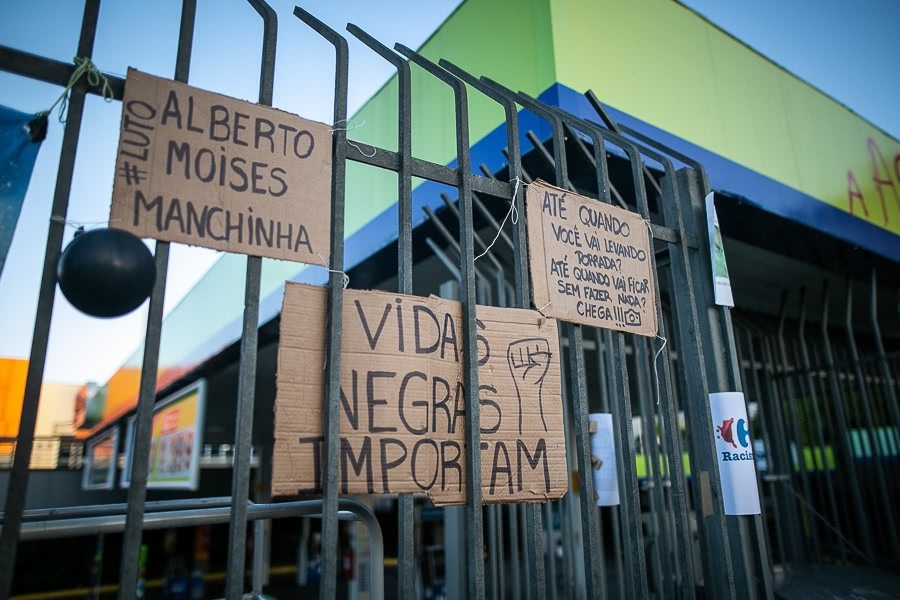 #LUTO
ALBERTO
MOISES
MANCHINHA
ATÉ QUANDO
VOCÊ VAI LEVANDO
PORRADA?
ATÉ QUANDO VAI FICAR
SEM FAZER NADA?
CHEGA!!!
VIDAS
NEGRAS
IMPORTAM
Racis